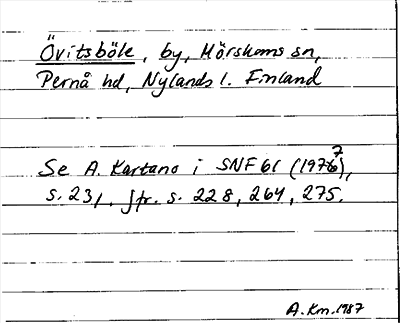 Övitsböle, by, Mörskoms sn,
Pernå hd, Nylands l. Finland
Se A. Kartano i SNF 61 (19767),
s. 231. Jfr. s. 228, 264, 275.
A.Km.1987